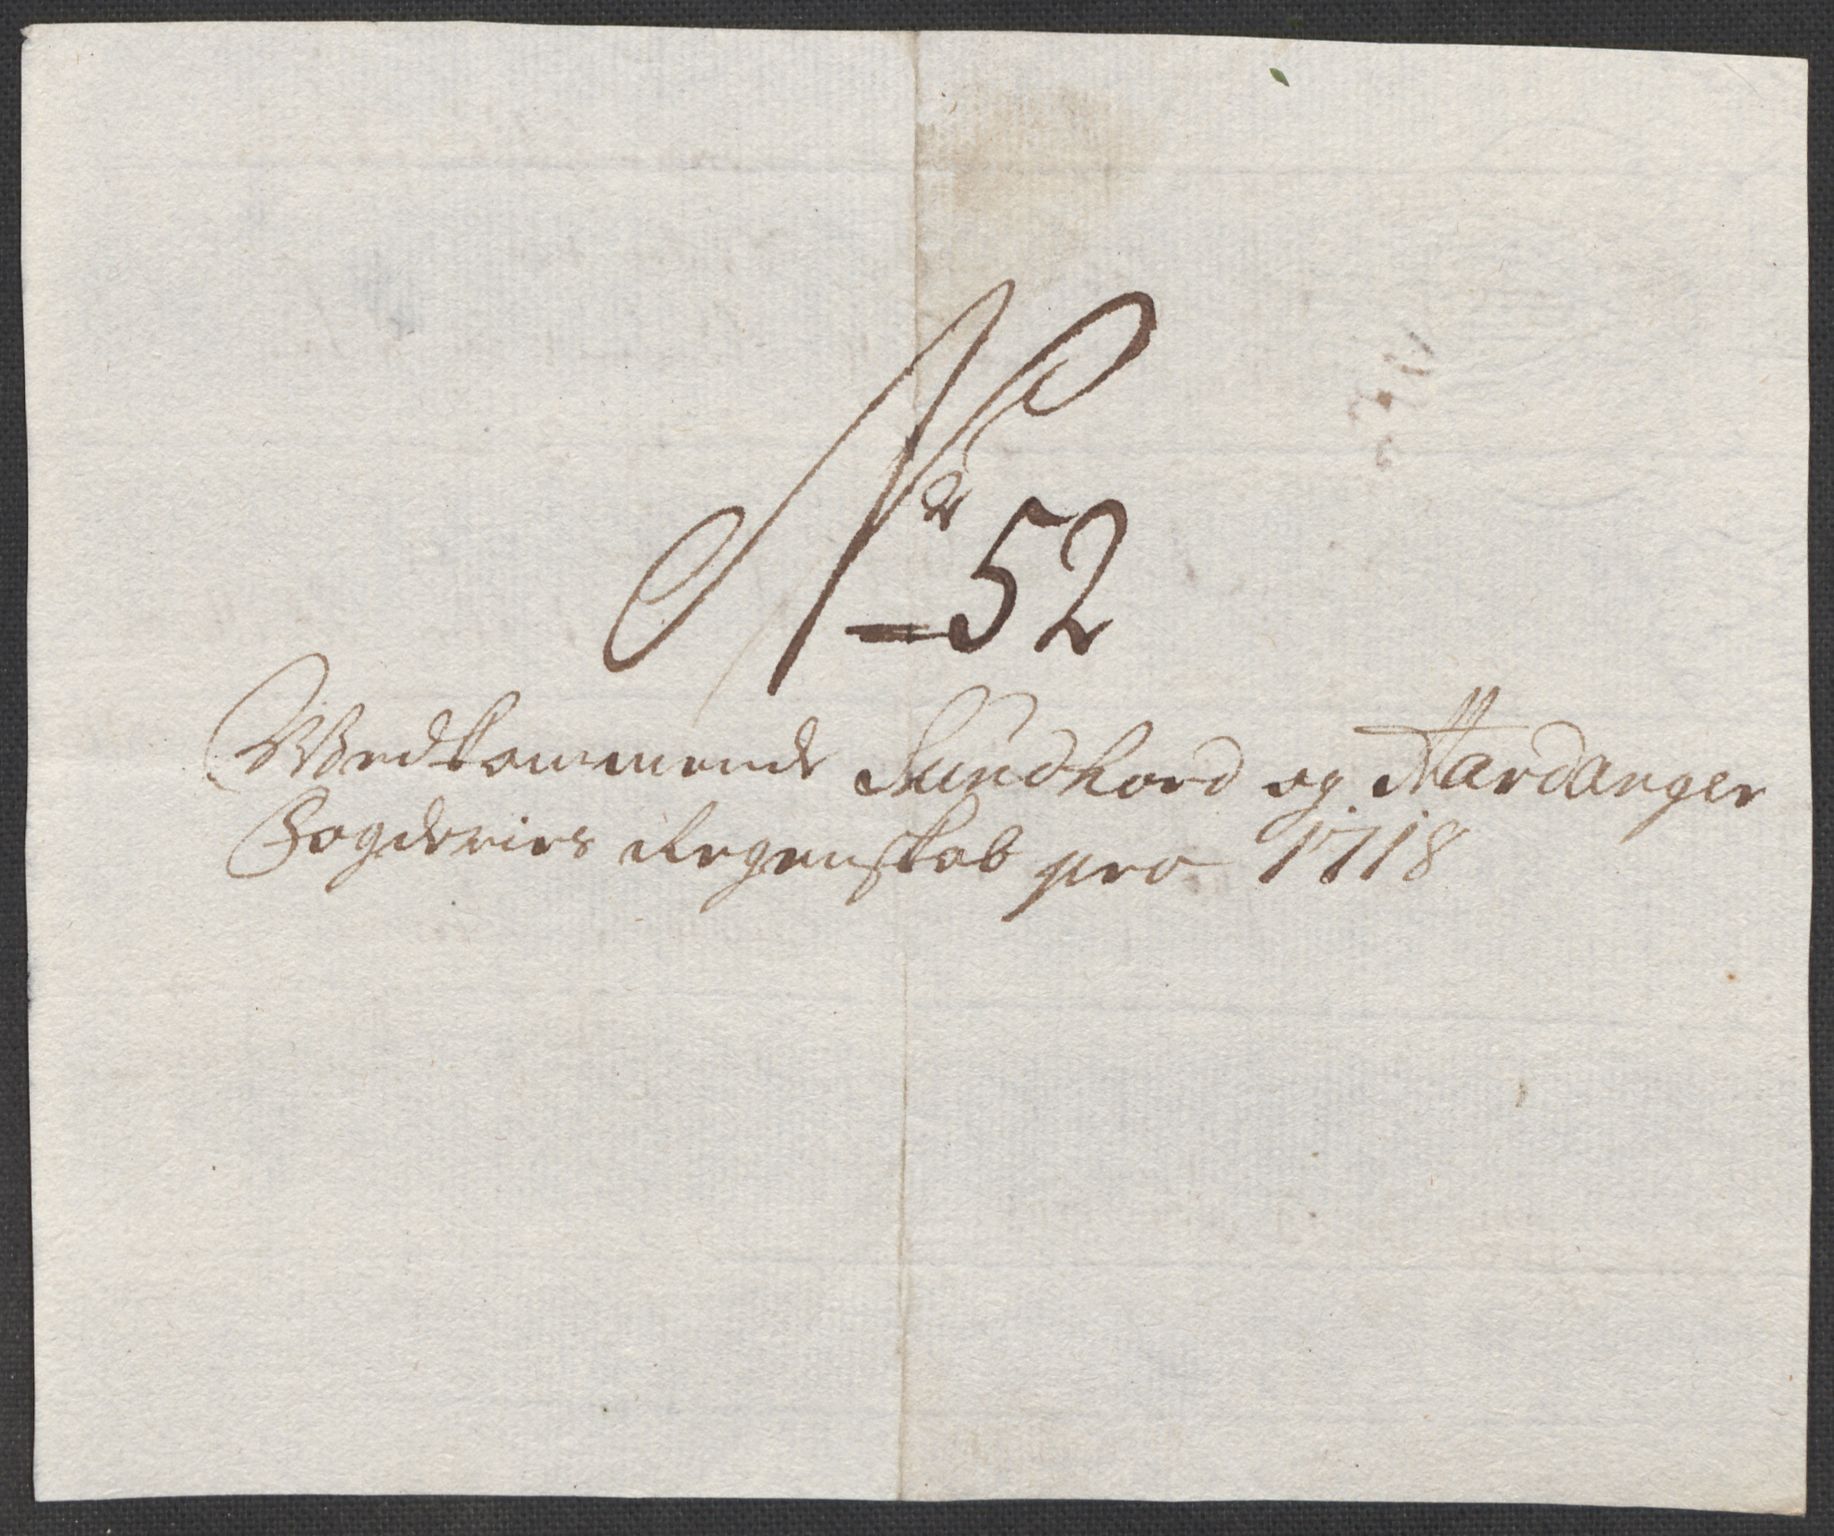 Nr 52
Wedkommende Sundhord og Hardanger
Fogderies Regenskab pro 1718